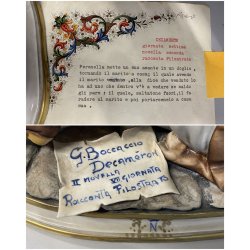 DECAMERON
giornata settima
novella seconda
racconta Filostrato
Peronella mette un suo amante in un doglio,
tornando il marito a casa; il quale avendo
il marito venduto, ella dice che venduto lo
ha ad uno che dentro v'è a vedere se saldo
gli pare: il quale, saltatone fuori, il fa
radere al marito e poi portarsenelo a casa
sua.
G. Boccaccio
Decaméron
II NOVELLA VII GIORNATA
RACCONTA FILOSTRATO
N